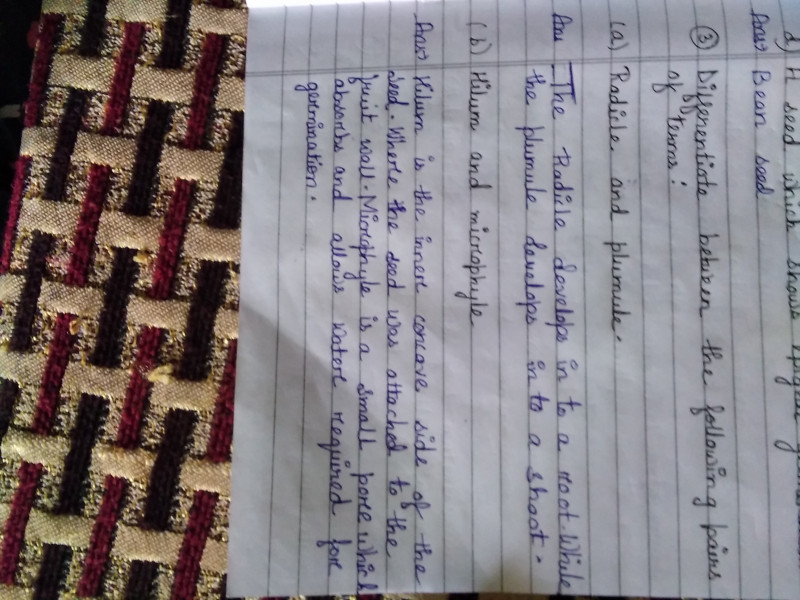 d) A seed which shows epigeal
Ans) Bean seed
③ Differentiate between the following pairs
of terms:
(a) Radicle and plumule.
Ans The Radicle develops in to a root. While
the plumule develops in to a shoot.
(b) Hilum and microphyle
Ans) Hilum is the inner concave side of the
seed. Where the seed was attached to the
fruit wall. Microphyle is a small pore which
absorbs and allows water required for
germination.